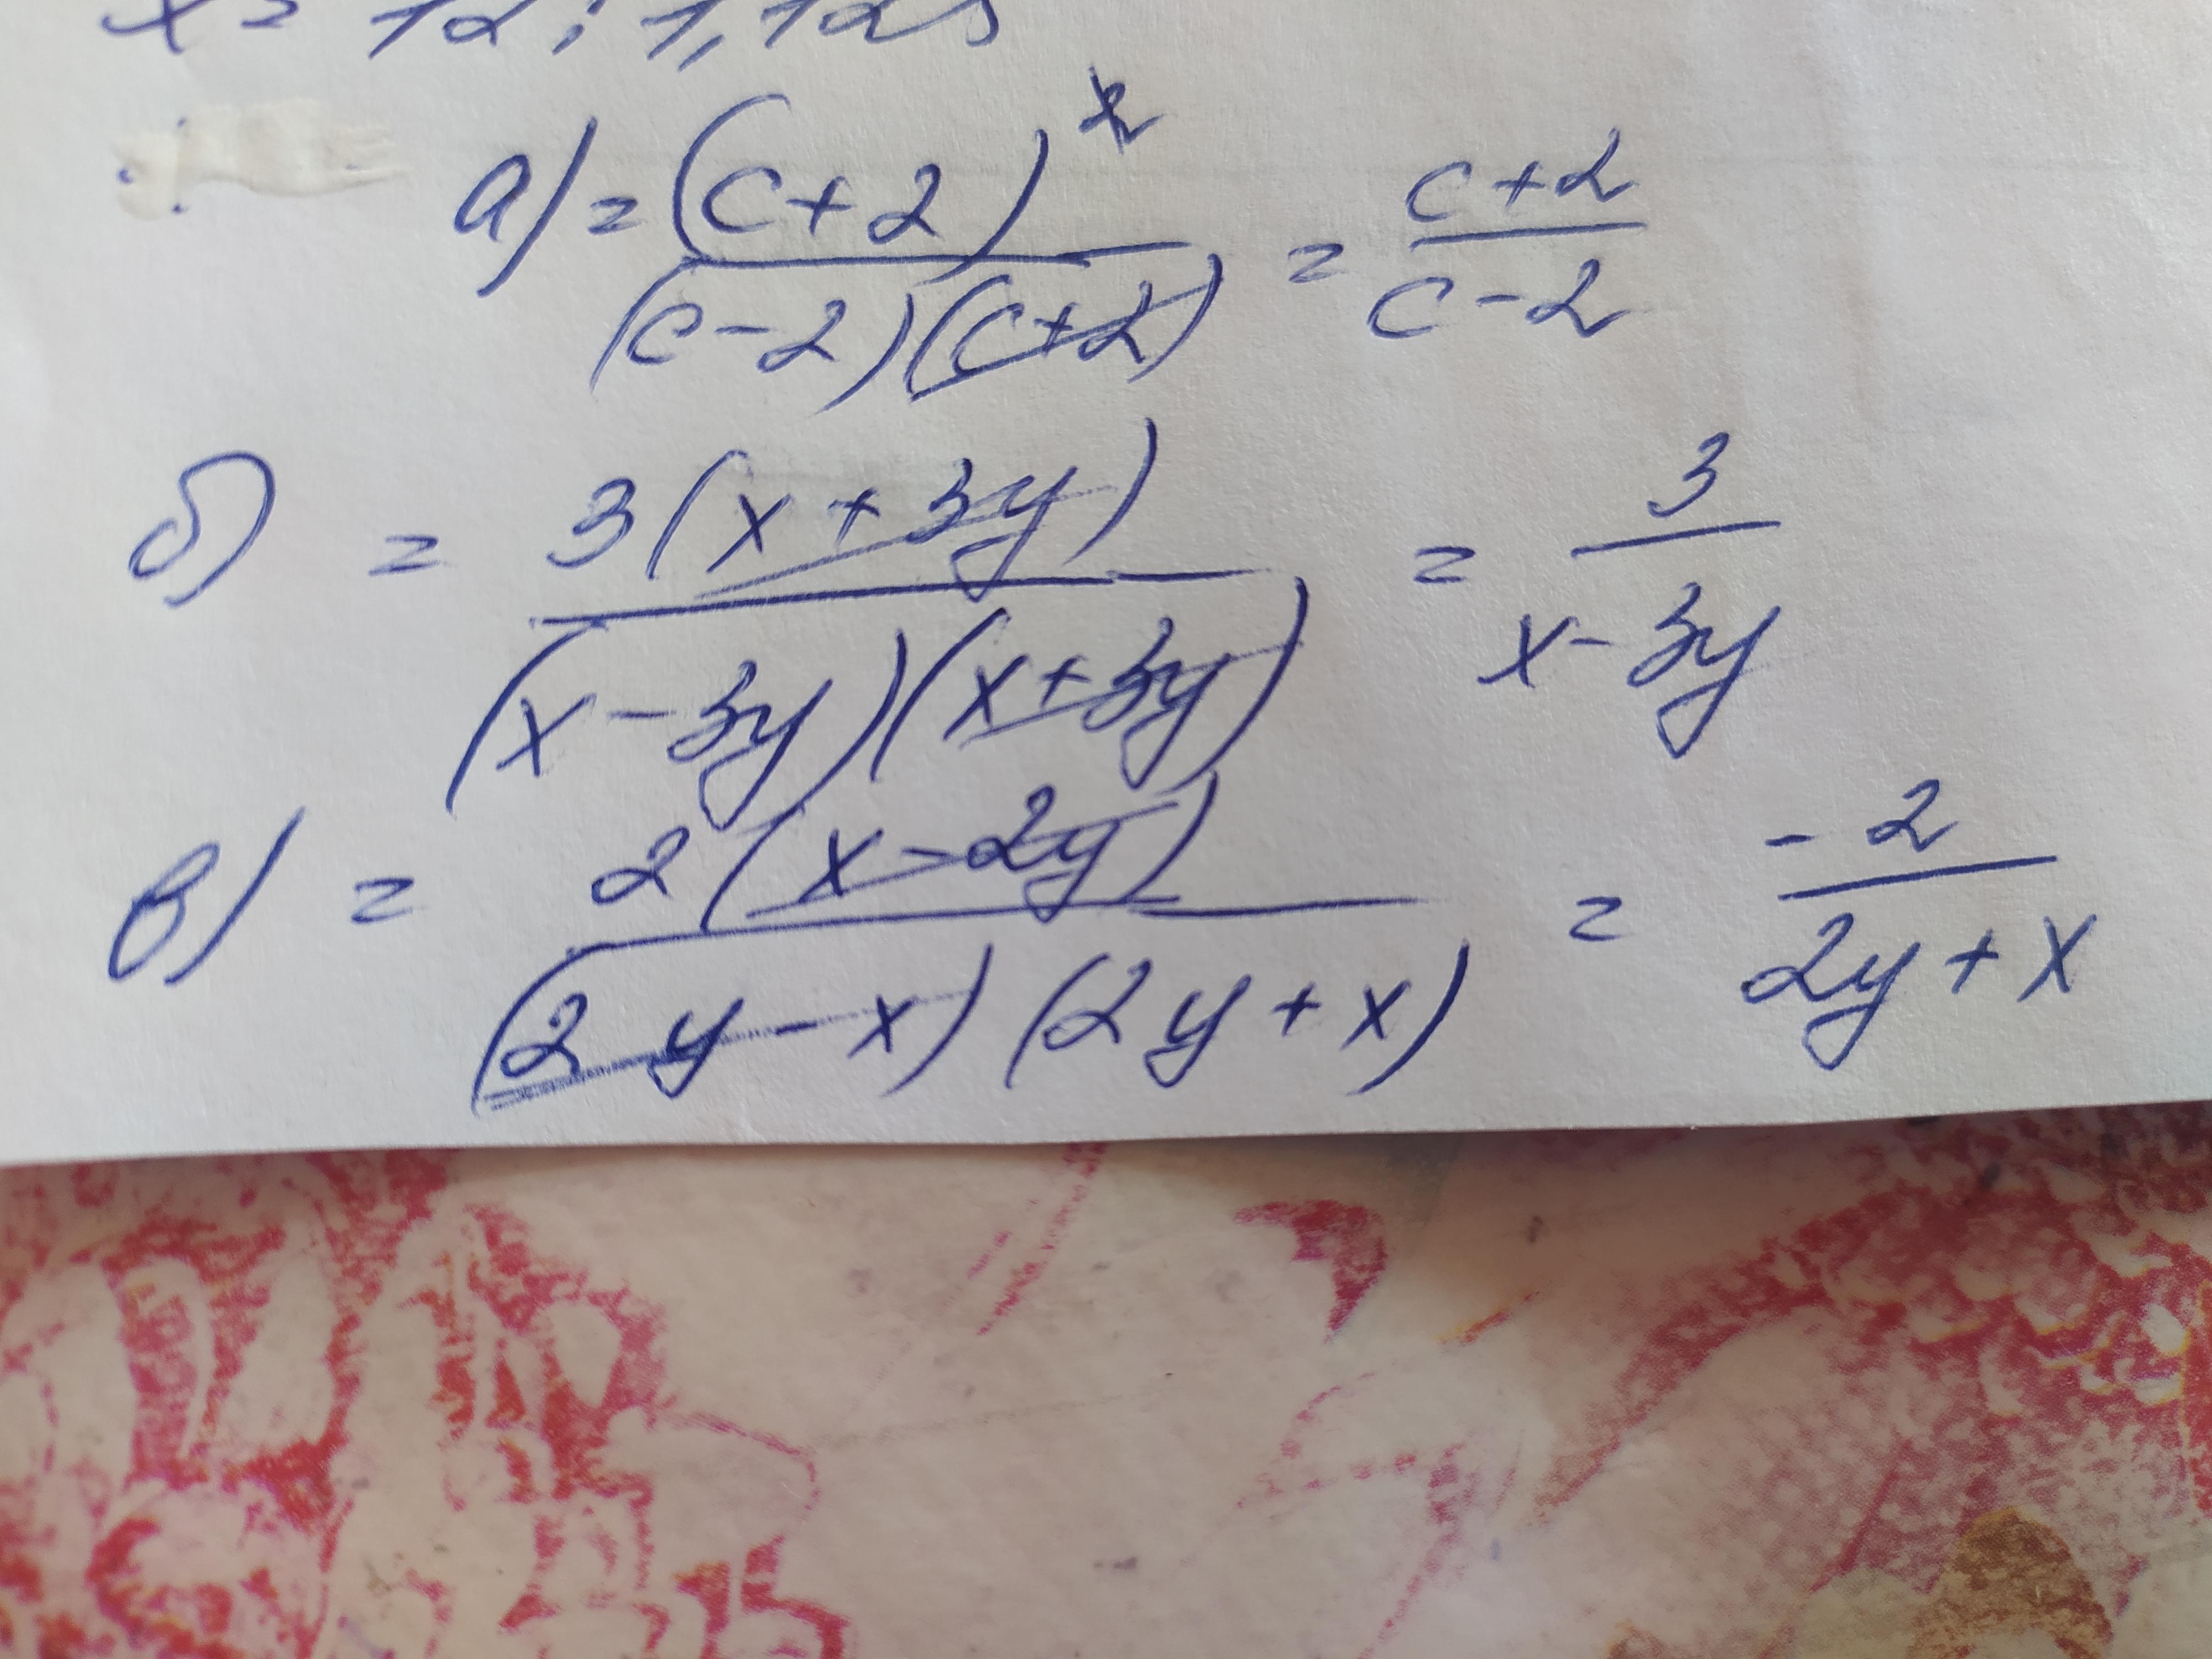 x = 12 : 1,125
а) = (c+2)² / (c-2)(c+2) = c+2 / c-2
б) = 3(x+3y) / (x-3y)(x+3y) = 3 / x-3y
в) = 2(x-2y) / (2y-x)(2y+x) = -2 / 2y+x